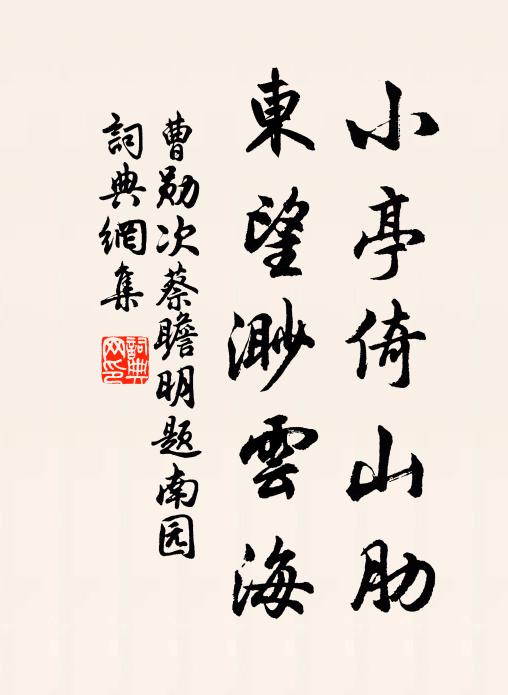 小亭倚山肋
東望渺雲海
曹勋次蔡瞻明题南园
詞典網集
詞典網印